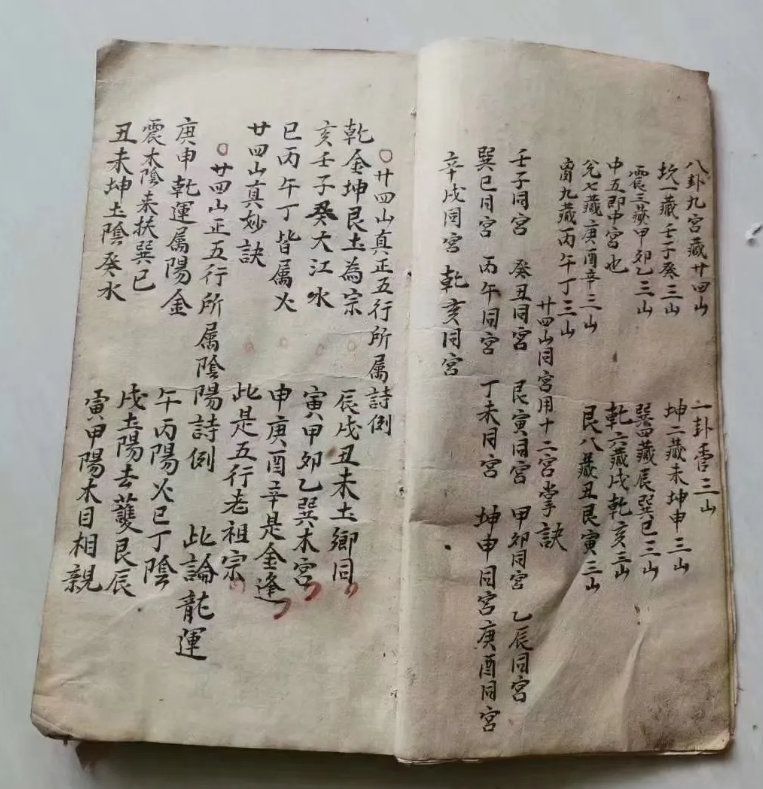 八卦九宮藏廿四山 一卦管三山
坎一藏壬子癸三山 坤二藏未坤申三山
震三藏甲卯乙三山 巽四藏辰巽巳三山
中五即中宮也 乾六藏戌乾亥三山
兌七藏庚酉辛三山 艮八藏丑艮寅三山
离九藏丙午丁三山
廿四山同宮用十二宮掌訣
壬子同宮 癸丑同宮 艮寅同宮 甲卯同宮 乙辰同宮
巽巳同宮 丙午同宮 丁未同宮 坤申同宮 庚酉同宮
辛戌同宮 乾亥同宮
○廿四山真正五行所属詩例
乾金坤艮土為宗 辰戌丑未土鄉同
亥壬子癸大江水 寅甲卯乙巽木宮
巳丙午丁皆属火 申庚酉辛是金逢
廿四山真妙訣 此是五行老祖宗
○廿四山正五行所属陰陽詩例 此論龍運
庚申乾運属陽金 午丙陽火巳丁陰
震木陰来扶巽巳 戌土陽去護艮辰
丑未坤土陰癸水 寅甲陽木目相親